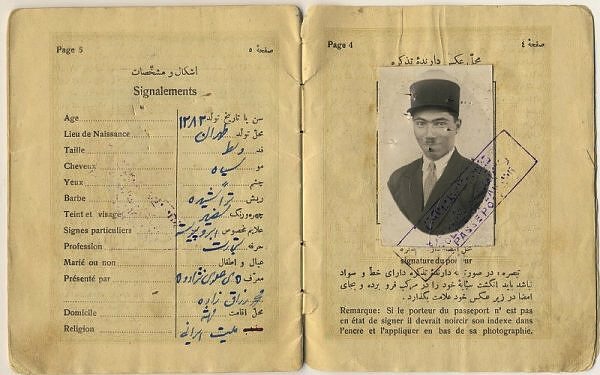 Page 5 صفحهٔ ٥
اشکال و مشخّصات
Signalements
Age سن یا تاریخ تولد ١٢٨٣
Lieu de Naissance محلّ تولد طهران
Taille قد وسط
Cheveux مو سیاه
Yeux چشم
Barbe ریش تراشیده
Teint et visage چهره ورنگ
Signes particuliers علایم مخصوص ابرو پیوسته
Profession حرفه تجارت
Marié ou non عیال و اطفال
Présenté par معرّف
Domicile محلّ اقامت
Religion ملیت ایرانی
Page 4 صفحهٔ ٤
محلّ عکس دارندهٔ تذکره
PASSEPO
signature du porteur
تبصره: در صورتیکه دارندهٔ تذکره دارای خطّ و سواد
نباشد باید انگشت سبّابهٔ خود را در مرکب فرو برده و بجای
امضا در زیر عکس خود علامت بگذارد.
Remarque: Si le porteur du passeport n' est pas
en état de signer il devrait noircir son indexe dans
l'encre et l'appliquer en bas de sa photographie.